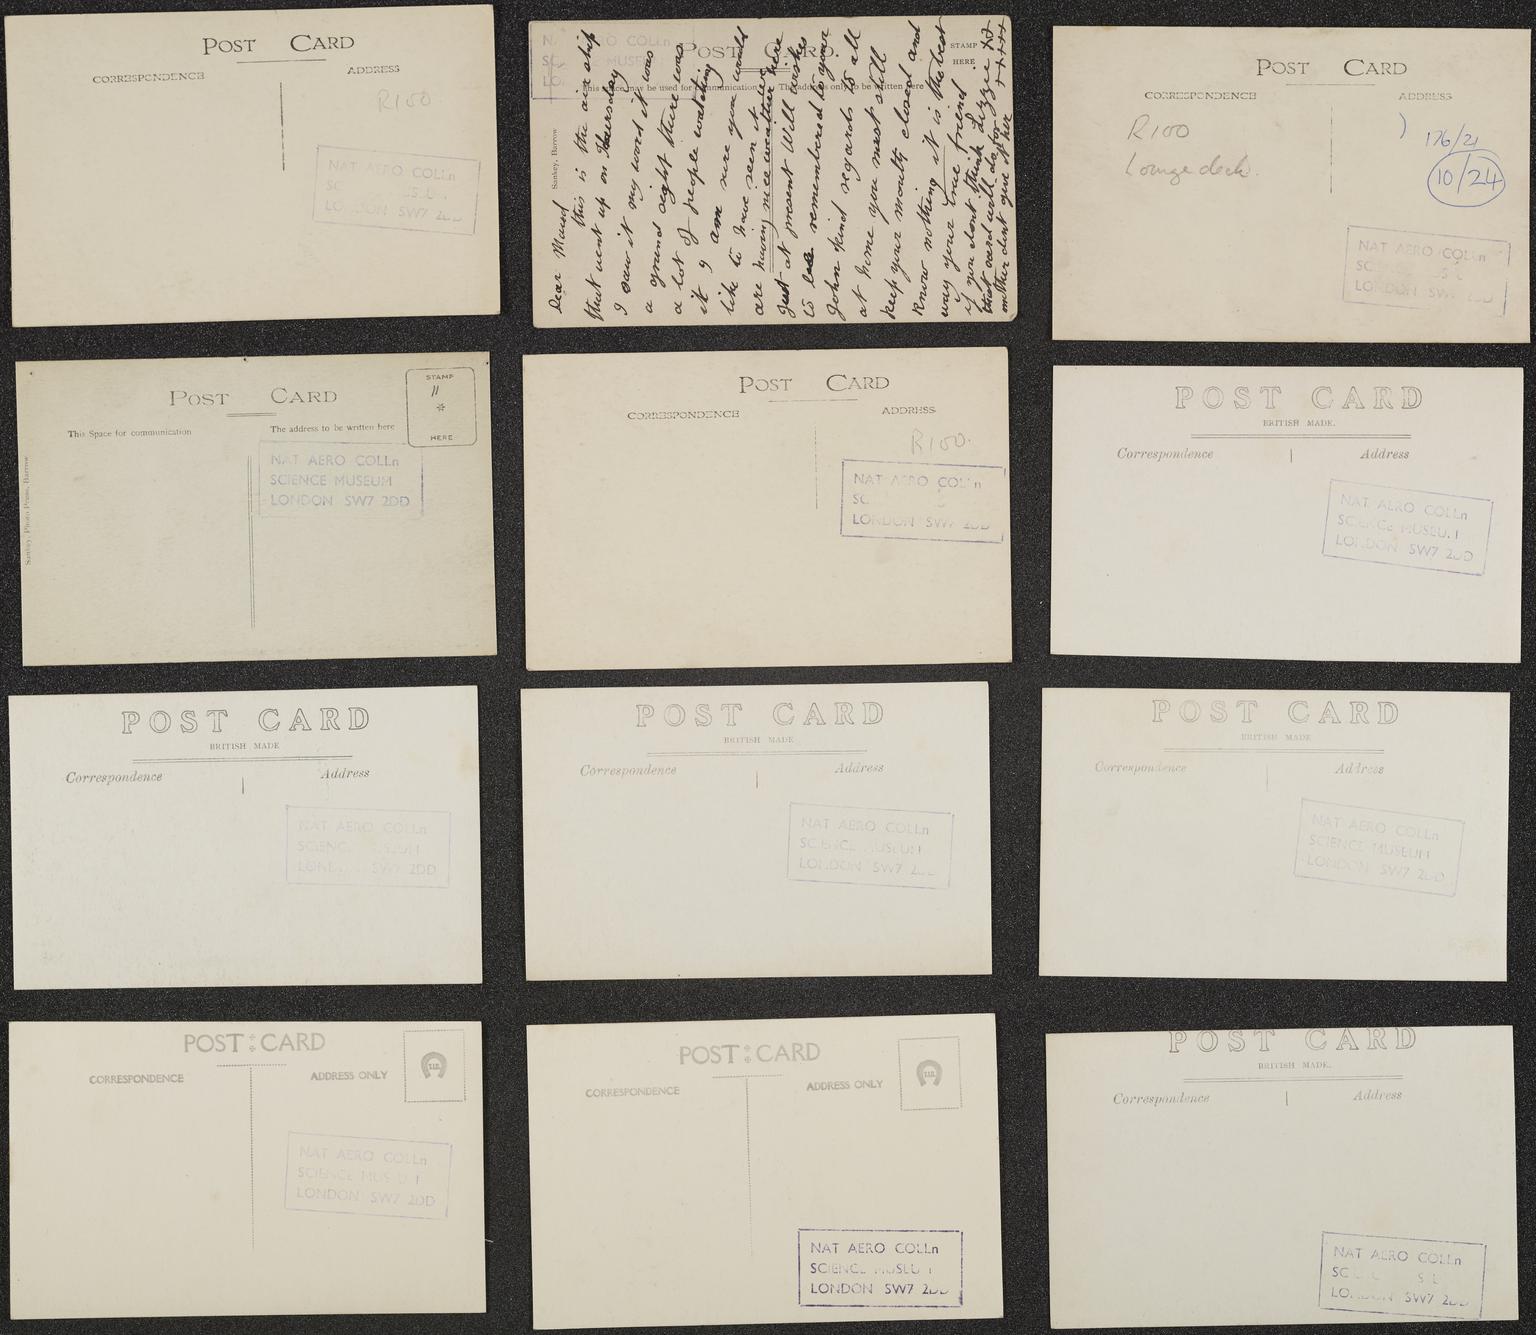 POST CARD
CORRESPONDENCE
ADDRESS
R100
NAT AERO COLLn
LONDON SW7 2DD
POST CARD
STAMP
HERE
This space may be used for communication
The address only to be written here
Sankey, Barrow
Dear Maud
this is the air ship
that went up on Thursday
I saw it my word it was
a grand sight there was
a lot of people watching
it I am sure you would
like to have seen it we
are having nice weather here
Just at present Will wishes
to be remembered to you
John kind regards to all
at home you must still
keep your mouth closed and
know nothing it is the best
way your true friend
Lizzie xx
xxxx
if you dont think
that card will do for
mother dont give it her
POST CARD
CORRESPONDENCE
ADDRESS
R100
Lounge deck.
176/21
10/24
NAT AERO COLLn
LONDON SW7 2DD
POST CARD
STAMP
HERE
This Space for communication
The address to be written here
Sankey, Photo Press, Barrow
NAT AERO COLLn
SCIENCE MUSEUM
LONDON SW7 2DD
POST CARD
CORRESPONDENCE
ADDRESS
R100.
NAT AERO COLLn
LONDON SW7 2DD
POST CARD
BRITISH MADE.
Correspondence
Address
NAT AERO COLLn
SCIENCE MUSEUM
LONDON SW7 2DD
POST CARD
BRITISH MADE
Correspondence
Address
NAT AERO COLLn
SCIENCE MUSEUM
LONDON SW7 2DD
POST CARD
BRITISH MADE
Correspondence
Address
NAT AERO COLLn
SCIENCE MUSEUM
LONDON SW7 2DD
POST CARD
BRITISH MADE
Correspondence
Address
NAT AERO COLLn
SCIENCE MUSEUM
LONDON SW7 2DD
POST CARD
CORRESPONDENCE
ADDRESS ONLY
NAT AERO COLLn
SCIENCE MUSEUM
LONDON SW7 2DD
POST CARD
CORRESPONDENCE
ADDRESS ONLY
NAT AERO COLLn
SCIENCE MUSEUM
LONDON SW7 2DD
POST CARD
BRITISH MADE.
Correspondence
Address
NAT AERO COLLn
LONDON SW7 2DD